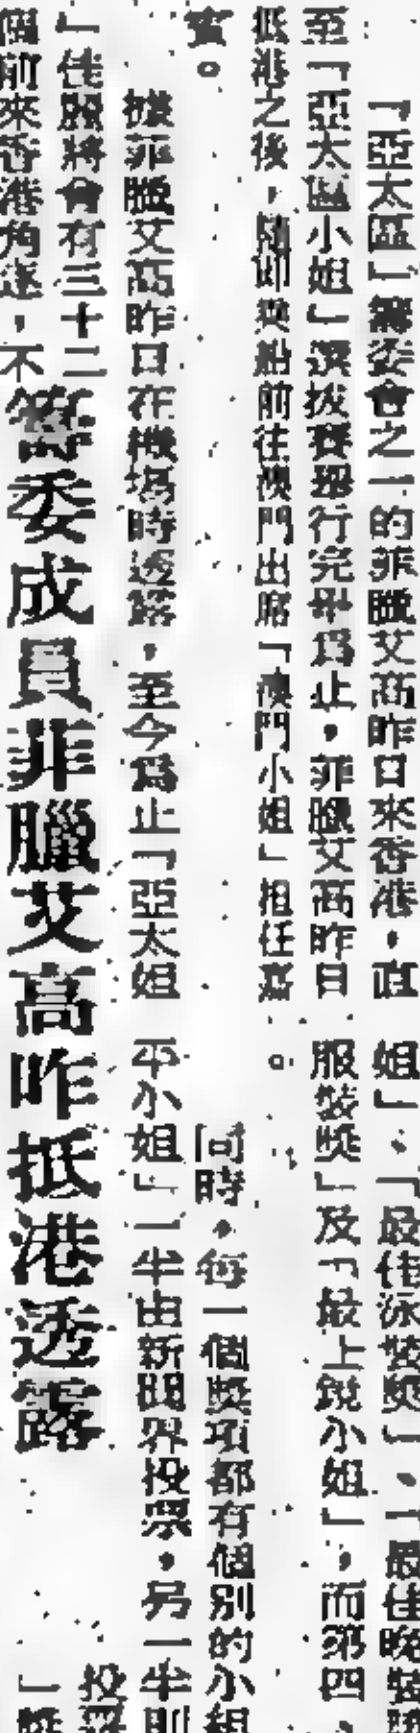 「亞太區」籌委會之一的菲臘艾高昨日來香港,直
至「亞太區小姐」選拔賽舉行完畢爲止,菲臘艾高昨日
抵港之後,隨即乘船前往澳門出席「澳門小姐」担任嘉
賓。
據菲臘艾高昨日在機塲時透露,至今爲止「亞太姐
」佳麗將會有三十二
個前來香港角逐,不
籌委成員菲臘艾高昨抵港透露
姐」、「最佳泳裝奬」、「最佳晚裝
服裝奬」及「最上鏡小姐」,而第四
。
同時,每一個奬項都有個別的小組
平小姐」一半由新聞界投票,另一半則
投選